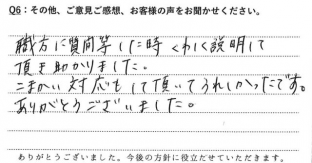 Q6：その他、ご意見ご感想、お客様の声をお聞かせください。
職方に質問等した時くわしく説明して
頂き助かりました。
こまかい対応もして頂いてうれしかったです。
ありがとうございました。
ありがとうございました。今後の方針に役立たせていただきます。